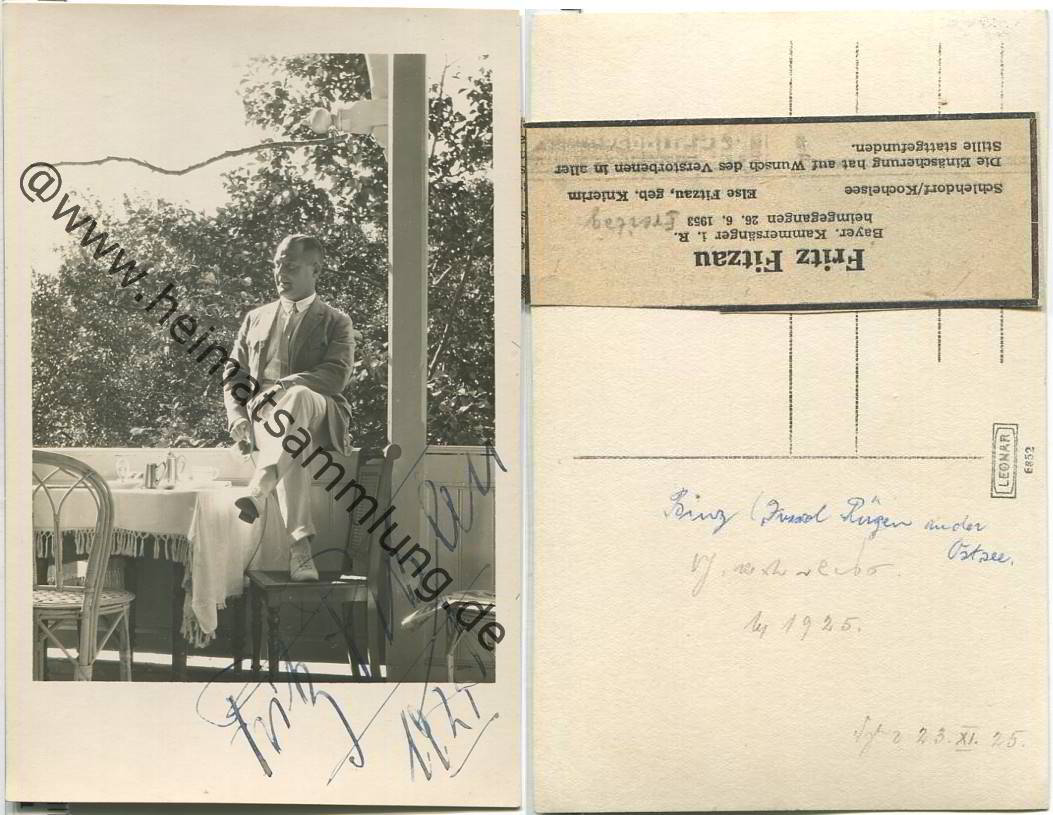 @www.heimatsammlung.de
Fritz Fitzau
Fritz Fitzau
Bayer. Kammersänger i. R.
heimgegangen 26. 6. 1953
Freitag
Schlehdorf/Kochelsee Else Fitzau, geb. Knierim
Die Einäscherung hat auf Wunsch des Verstorbenen in aller
Stille stattgefunden.
LEONAR
6852
Binz (Insel Rügen in der
Ostsee.
1925.
23. XI. 25.